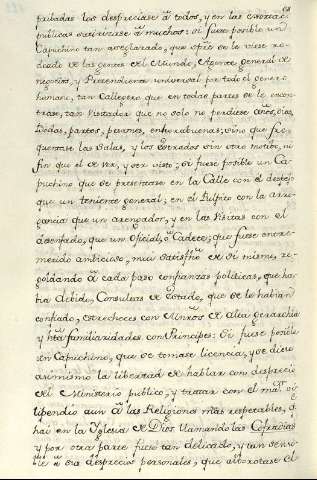 privadas los despreciase á todos, y en las
publicas satirizase á muchos: si fuese posible un
Capuchino tan aseglarado, que siẽpre se le viese ro-
deado de las gentes del Mundo, Agente general de
negocios, y Pretendiente universal por todo el genero
humano, tan Callegero que en todas partes se le encon-
trase, tan Visitador que no solo no perdiese años, dias,
bodas, partos, pesames, enhorabuenas, sino que fre-
quentase las Salas, y los Estrados sin otro motivo, ni
fin que el de ver, y ser visto; si fuese posible un Ca-
puchino que se presentase en la Calle con el despejo
que un teniente general; en el Pulpito con la arro-
gancia que un arengador, y en las Visitas con el
desenfado, que un Oficial, ó Cadete; que fuese entre-
metido ambicioso, mui satisfho de si mismo, re-
goldando á cada paso confianzas politicas, que ha-
bia debido, Consultas de Estado, que se le habian
confiado, estrecheces con Minros de alta gerarchia
y hta familiaridades con Principes: Si fuese posible
un Capuchino, que se tomase licencia, y se diese
asimismo la libertad de hablar con desprecio
del Ministerio publico, y tratar con el mar vi-
lipendio aun á las Religiones más respetables, q.
hai en la Yglesia de Dios llamandolas Cofradias
y por otra parte fuese tan delicado, y tan sensi-
ble á sus desprecios personales, que alborotase el